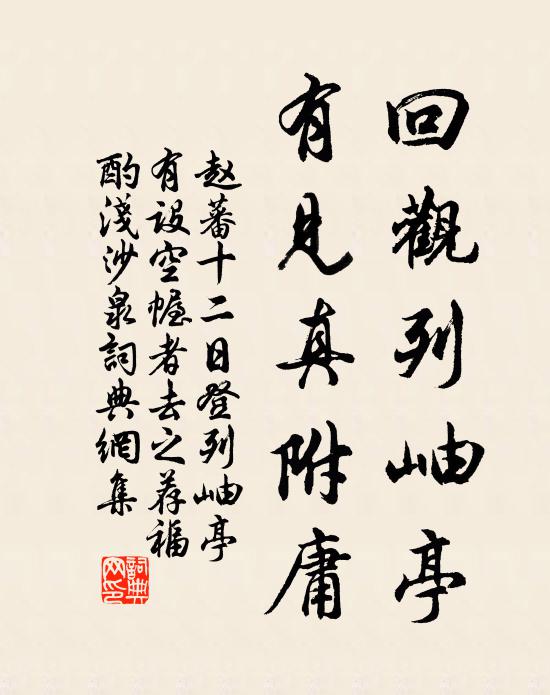 回觀列岫亭
有見真附庸
赵蕃十二日登列岫亭
有设空幄者去之荐福
酌淺沙泉詞典網集
詞典网印